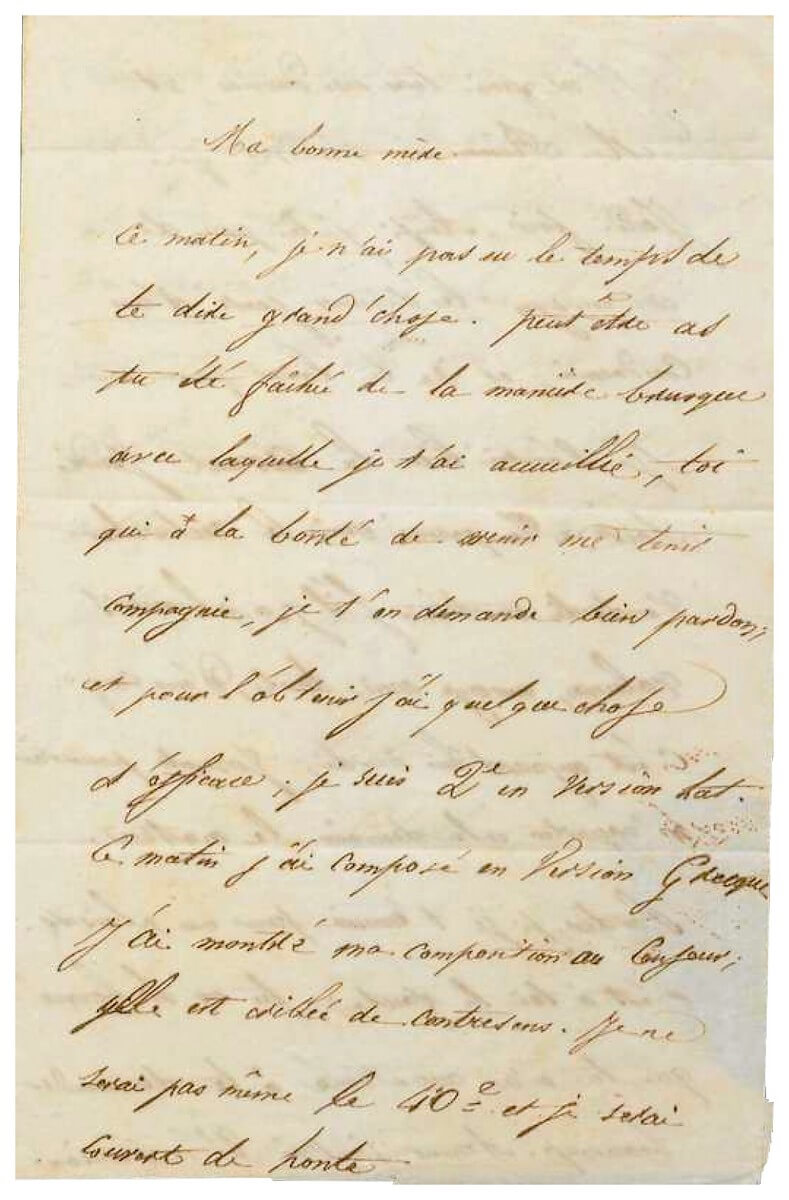 Ma bonne mère.
Ce matin, je n'ai pas eu le temps de
te dire grand'chose. peut être as
tu été fâchée de la manière brusque
avec laquelle je t'ai accueillie, toi
qui à la bonté de venir me tenir
compagnie, je t'en demande bien pardon;
et pour l'obtenir j'ai quelque chose
d'efficace; je suis 2e en version lat.
Ce matin j'ai composé en Version Grecque
J'ai montré ma composition au Censeur;
elle est criblée de contresens. Je ne
serai pas même le 40e et je serai
couvert de honte